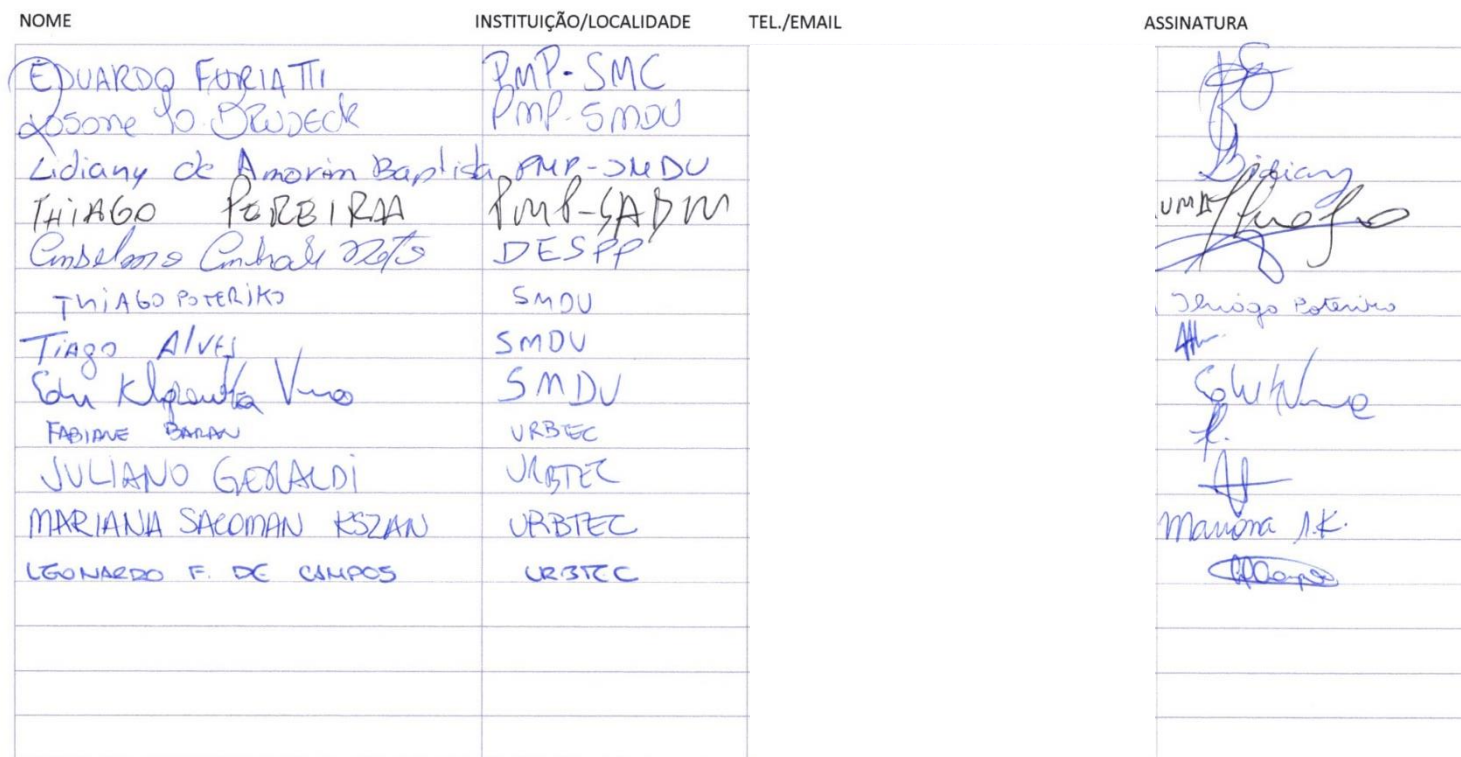 NOME INSTITUIÇÃO/LOCALIDADE TEL./EMAIL ASSINATURA
EDUARDO FURIATTI PMP-SMC
BRUDECK PMP-SMDU
Lidiany de Amorim Baptista PMP-SMDU Lidiany
THIAGO PEREIRA PMP-SADM
Neto DESPP
THIAGO POTERIKO SMDU Thiago Poteriko
Tiago Alves SMDU
SMDU
FABIANE BARAN URBTEC
JULIANO GERALDI URBTEC
MARIANA SACOMAN KSZAN URBTEC Mariana S.K.
LEONARDO F. DE CAMPOS URBTEC